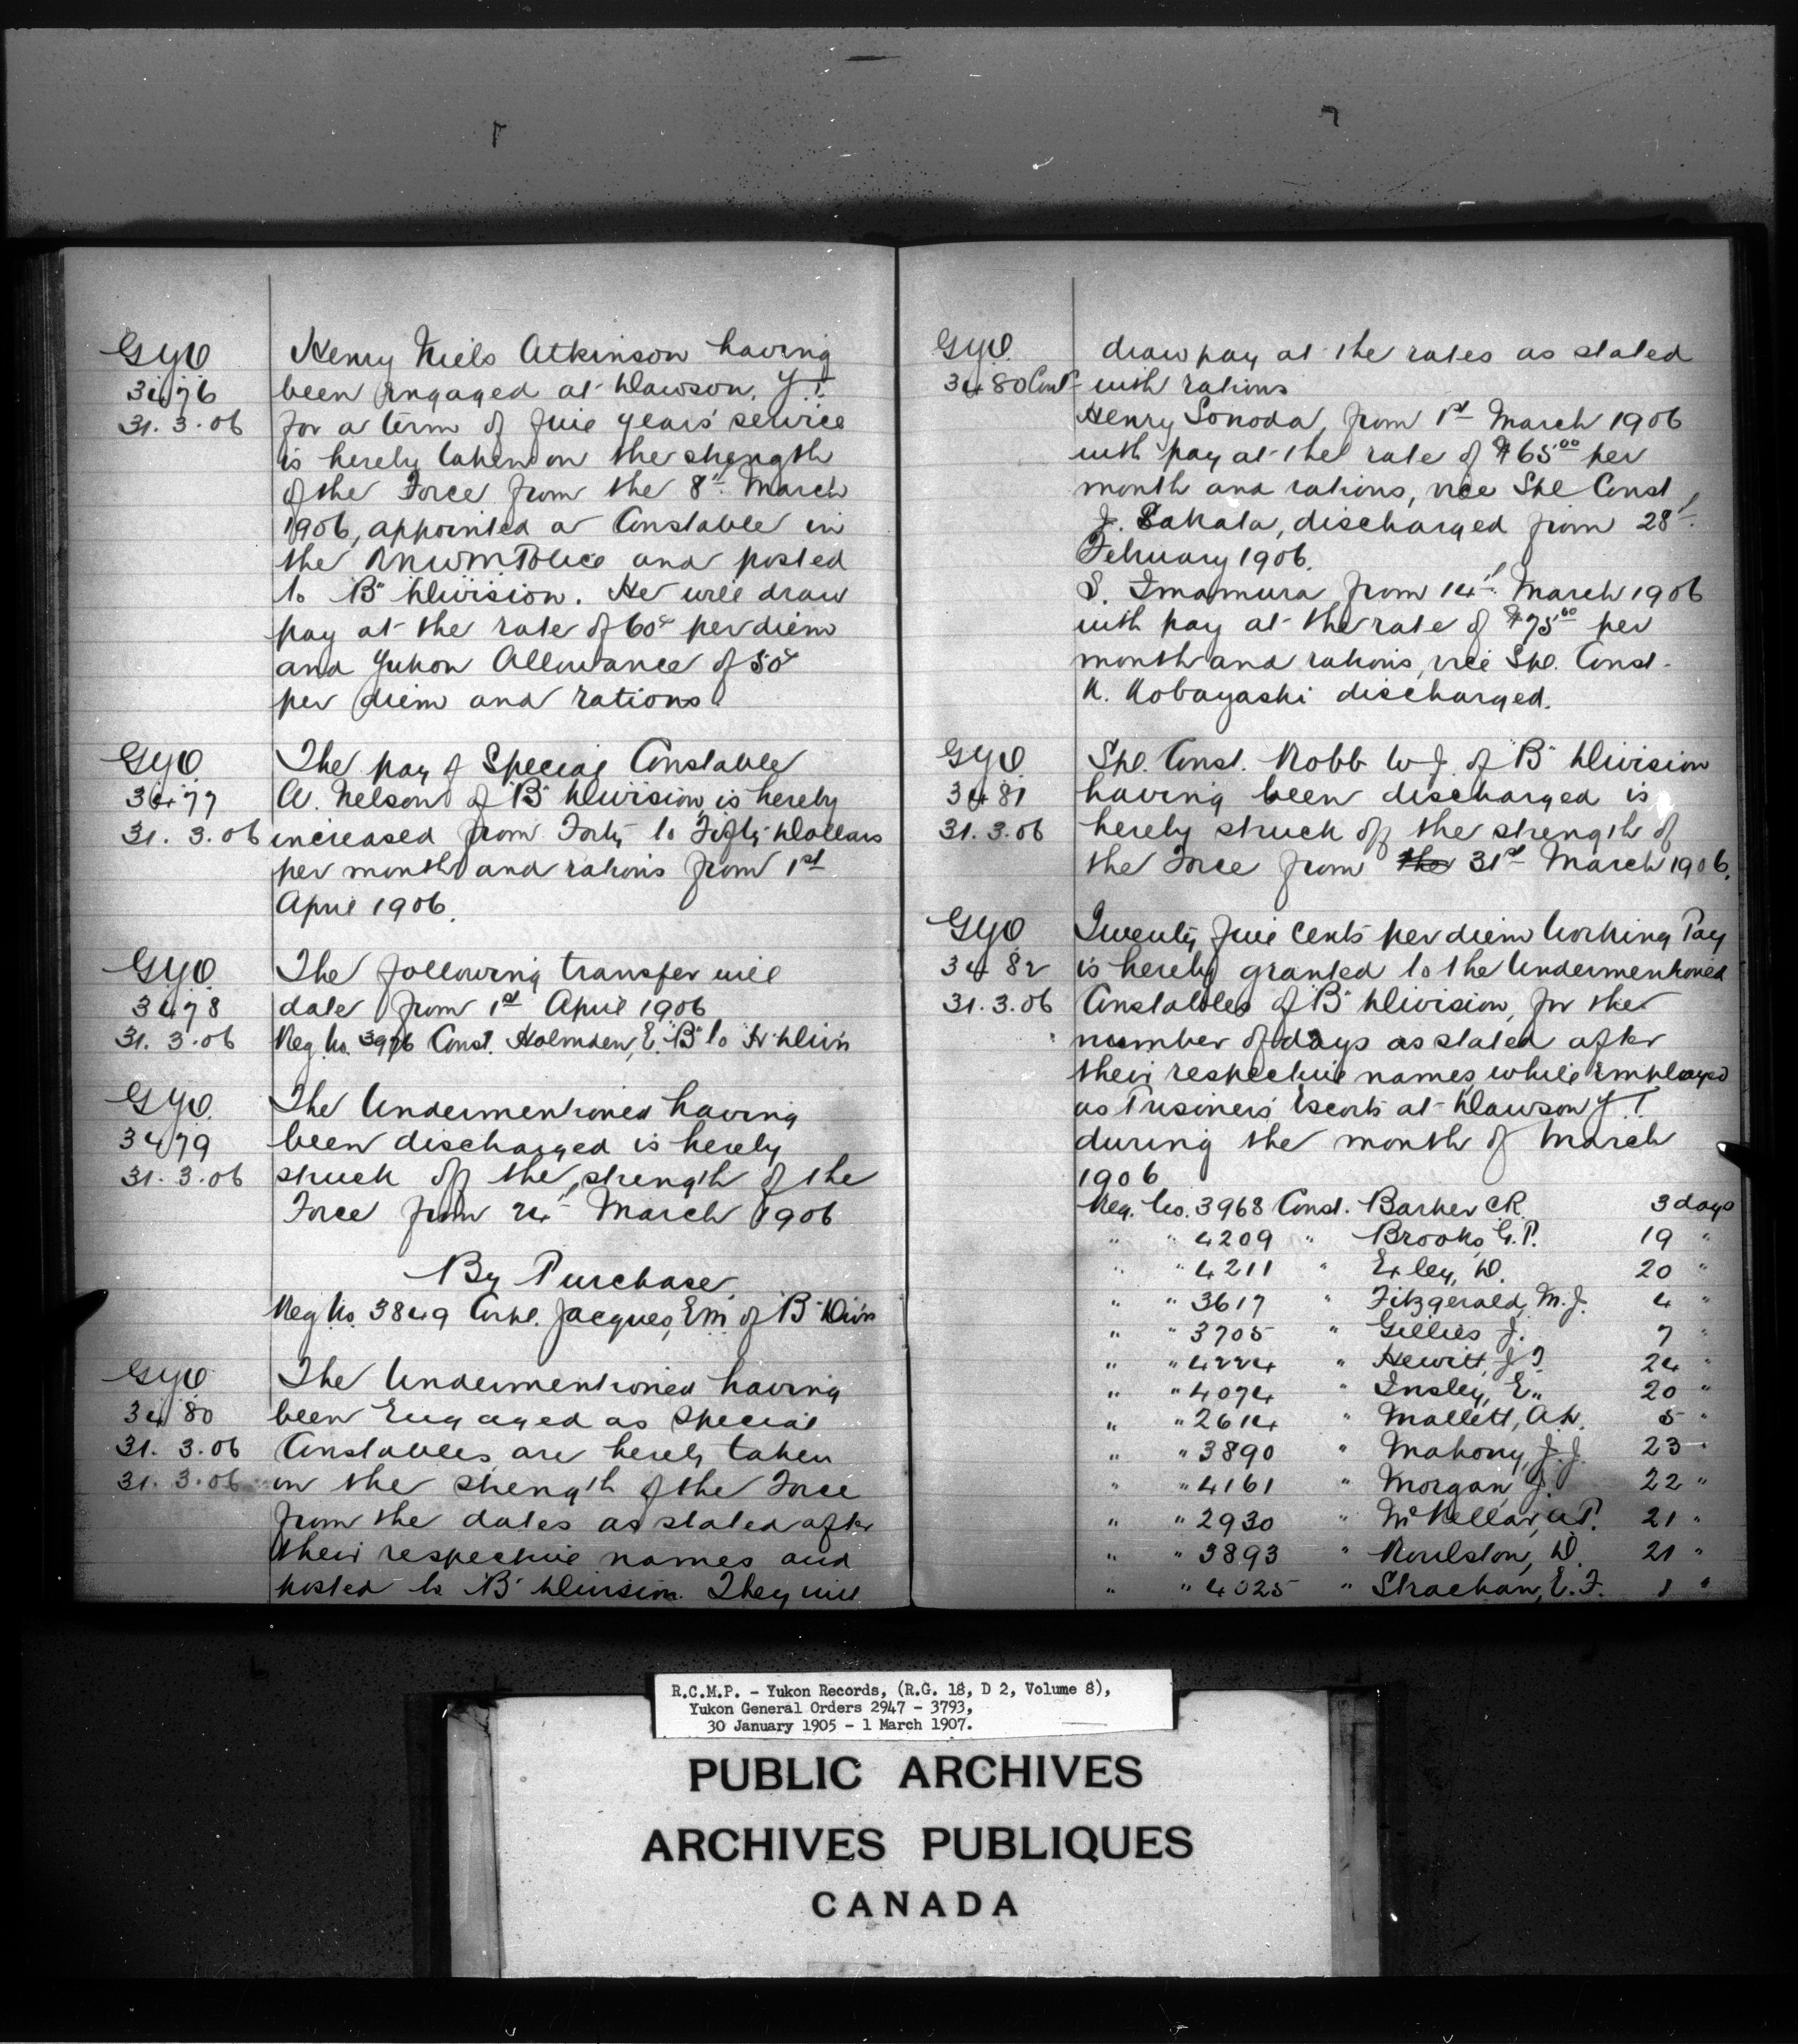 GYO
3476
31.3.06
Henry Niels Atkinson having
been engaged at Dawson, Y.T.
for a term of five years' service
is hereby taken on the strength
of the Force from the 8th March
1906, appointed a Constable in
the RNWM Police and posted
to "B" Division. He will draw
pay at the rate of 60c per diem
and Yukon Allowance of 50c
per diem and rations.
GYO
3477
31.3.06
The pay of Special Constable
A. Nelson of "B" Division, is hereby
increased from Forty to Fifty Dollars
per month and rations from 1st
April 1906.
GYO
3478
31.3.06
The following transfer will
date from 1st April 1906
Reg. No. 3976 Const. Holmden, E. "B" to "H" Div'n
GYO
3479
31.3.06
The Undermentioned having
been discharged is hereby
struck off the strength of the
Force from 24th March 1906
By Purchase
Reg No. 3849 Corpl. Jacques, E.M. of "B" Div'n
GYO
3480
31.3.06
31.3.06
The Undermentioned having
been Engaged as Special
Constables are hereby taken
on the strength of the Force
from the dates as stated after
their respective names and
posted to "B" Division. They will
GYO
3480 Cont
draw pay at the rates as stated
with rations
Henry Sonoda, from 1st March 1906
with pay at the rate of $65.00 per
month and rations, vice Spl Const
J. Sakata, discharged from 28th
February 1906.
S. Imamura from 14th March 1906
with pay at the rate of $75.00 per
month and rations, vice Spl. Const.
K. Kobayashi discharged.
GYO
3481
31.3.06
Spl. Const. Robb W.J. of "B" Division
having been discharged is
hereby struck off the strength of
the Force from the 31st March 1906.
GYO
3482
31.3.06
Twenty five cents per diem Working Pay
is hereby granted to the Undermentioned
Constables of "B" Division, for the
number of days as stated after
their respective names, while employed
as Prisoners' Escorts at Dawson Y.T.
during the month of March
1906
Reg. No. 3968 Const. Barker C.R. 3 days
" " 4209 " Brooks, G.P. 19 "
" " 4211 " Exley, D. 20 "
" " 3617 " Fitzgerald, M.J. 4 "
" " 3705 " Gillies J. 7 "
" " 4224 " Hewitt, J.T. 24 "
" " 4074 " Insley, E. 20 "
" " 2614 " Mallett, A.H. 5 "
" " 3890 " Mahony, J.J. 23 "
" " 4161 " Morgan, J. 22 "
" " 2930 " McKellar, A.P. 21 "
" " 3893 " Roulston, D. 21 "
" " 4025 " Strachan, E.F. 1 "
R.C.M.P. - Yukon Records, (R.G. 18, D 2, Volume 8),
Yukon General Orders 2947 - 3793,
30 January 1905 - 1 March 1907.
PUBLIC ARCHIVES
ARCHIVES PUBLIQUES
CANADA